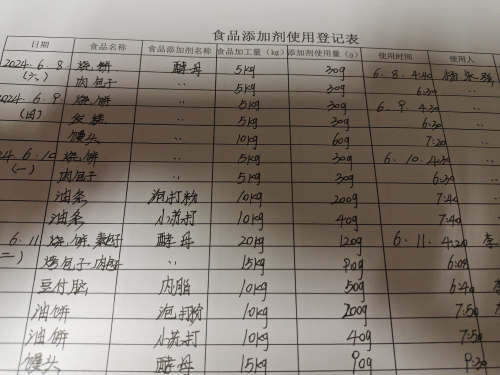 食品添加剂使用登记表
日期 食品名称 食品添加剂名称 食品加工量(kg) 添加剂使用量(g) 使用时间 使用人
2024.6.8 烧饼 酵母 5kg 30g 6.8.4:40
(六) 肉包子 〃 5kg 30g
2024.6.9 烧饼 〃 5kg 30g 6.9.4:30
(日) 发糕 〃 5kg 30g 6:30
馒头 〃 10kg 60g 7:20
24.6.10 烧饼 〃 5kg 30g 6.10.4:30
(一) 肉包子 〃 5kg 30g 6:30
油条 泡打粉 10kg 200g 7:40
油条 小苏打 10kg 40g 7:40
6.11 烧饼 酵母 20kg 120g 6.11.4:20 李
二) 包子 肉 〃 15kg 90g 6:00
豆付脑 内脂 10kg 50g 6:40
油饼 泡打粉 10kg 200g 7:50
油饼 小苏打 10kg 40g 7:50
馒头 酵母 15kg 90g 9:30